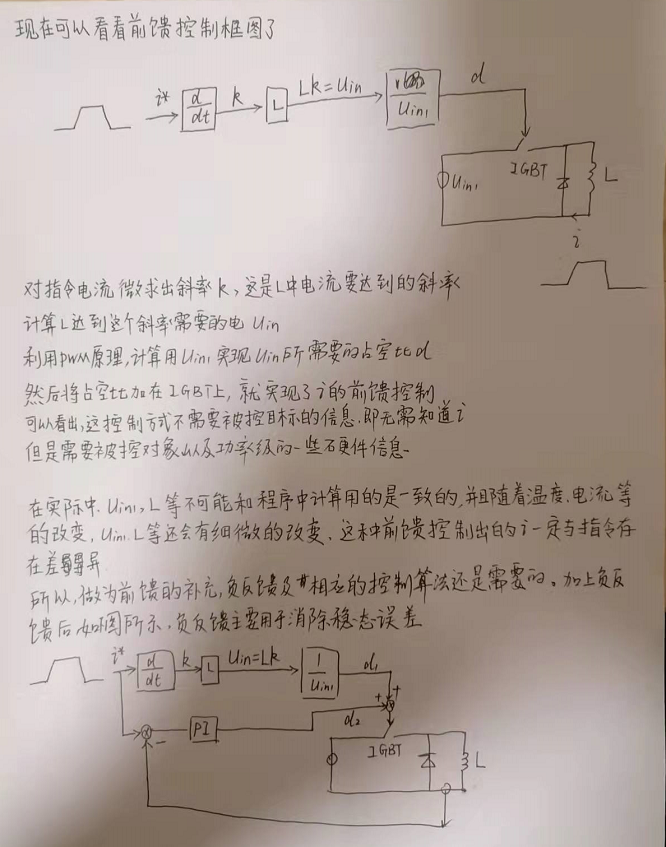 现在可以看看前馈控制框图了
i* d/dt k L Lk=Uin Uin1 d
IGBT
Uin1 L
i
对指令电流微求出斜率k,这是L中电流要达到的斜率
计算L达到这个斜率需要的电Uin
利用PWM原理,计算用Uin1实现Uin所需要的占空比d
然后将占空比加在IGBT上,就实现了i的前馈控制
可以看出,这控制方式不需要被控目标的信息.即无需知道i
但是需要被控对象以及功率级的一些硬件信息.
在实际中.Uin1,L等不可能和程序中计算用的是一致的,并且随着温度.电流等
的改变,Uin1.L等还会有细微的改变.这种前馈控制出的i一定与指令存
在差异
所以,做为前馈的补充,负反馈及相应的控制算法还是需要的。加上负反
馈后,如图所示,负反馈主要用于消除稳态误差
i* d/dt k L Uin=Lk 1/Uin1 d1
+ +
- PI d2
IGBT
L